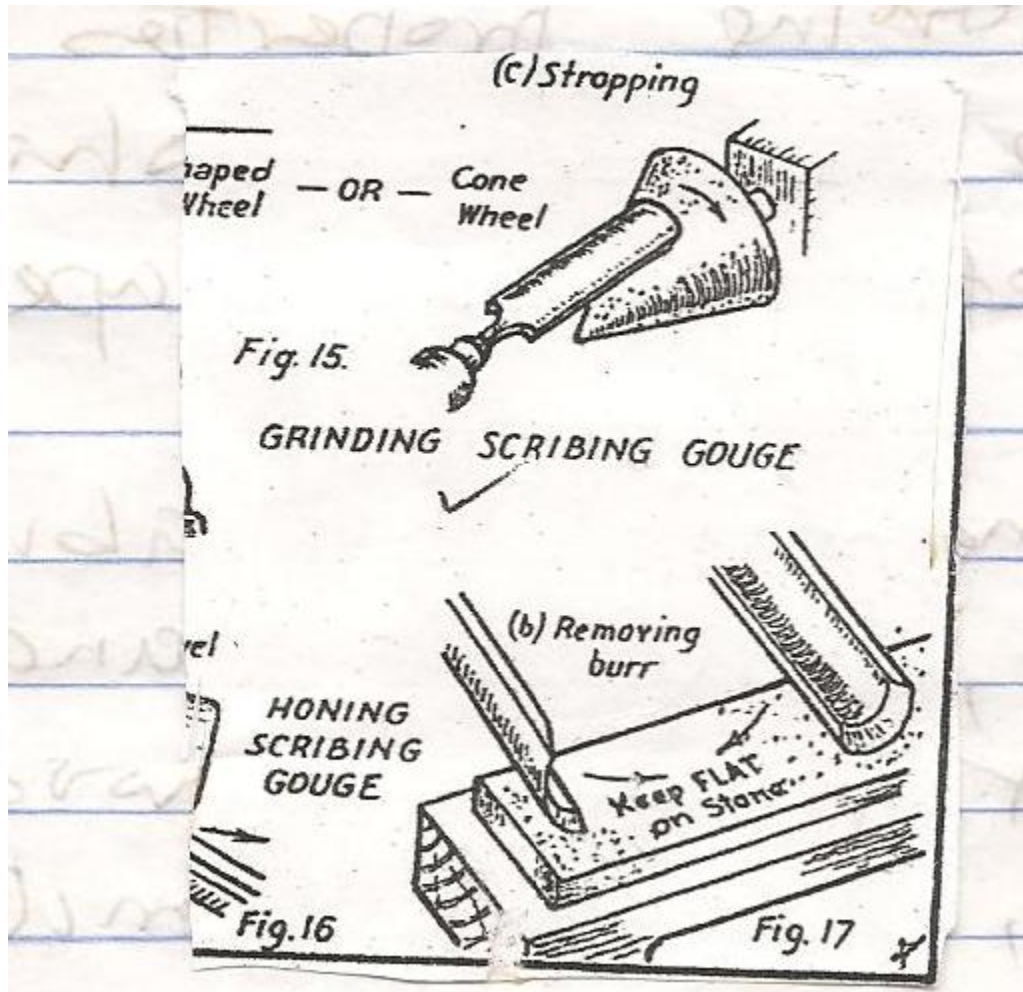 (c) Stropping
haped
Wheel
— OR —
Cone
Wheel
Fig. 15.
GRINDING SCRIBING GOUGE
vel
(b) Removing
burr
HONING
SCRIBING
GOUGE
Keep FLAT
on Stone
Fig. 16
Fig. 17